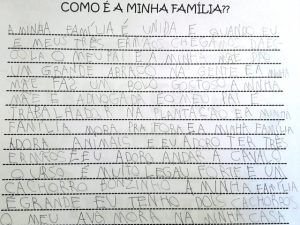 COMO É A MINHA FAMÍLIA??
A MINHA FAMÍLIA É UNIDA E QUANDO EU
E MEUS TRÊS ERMÃ CHEGA
O MEU PAI E A MINHE MÃE DA
UM GRANDE ABRAÇO NA GENTE E A MINHA
MÃE FAZ UM BOLO GOSTOSO A MINHA
MÃE É ADVOGADA E O MEU PAI É
TRABALHADOR NA PLANTAÇÃO E A MINHA
FAMÍLIA MORA PRA FORA E A MINHA FAMÍLIA
ADORA ANIMAIS E EU ADORO TER TRÊS
ERMÃOS E EU ADORO ANDAR A CAVALO
O URSO É MUITO LEGAU FORTE E UM
CACHORRO BONZINHO A MINHA FAMÍLIA
É GRANDE EU TENHO DOIS CACHORROS
O MEU AVÔ MORA NA MINHA CASA